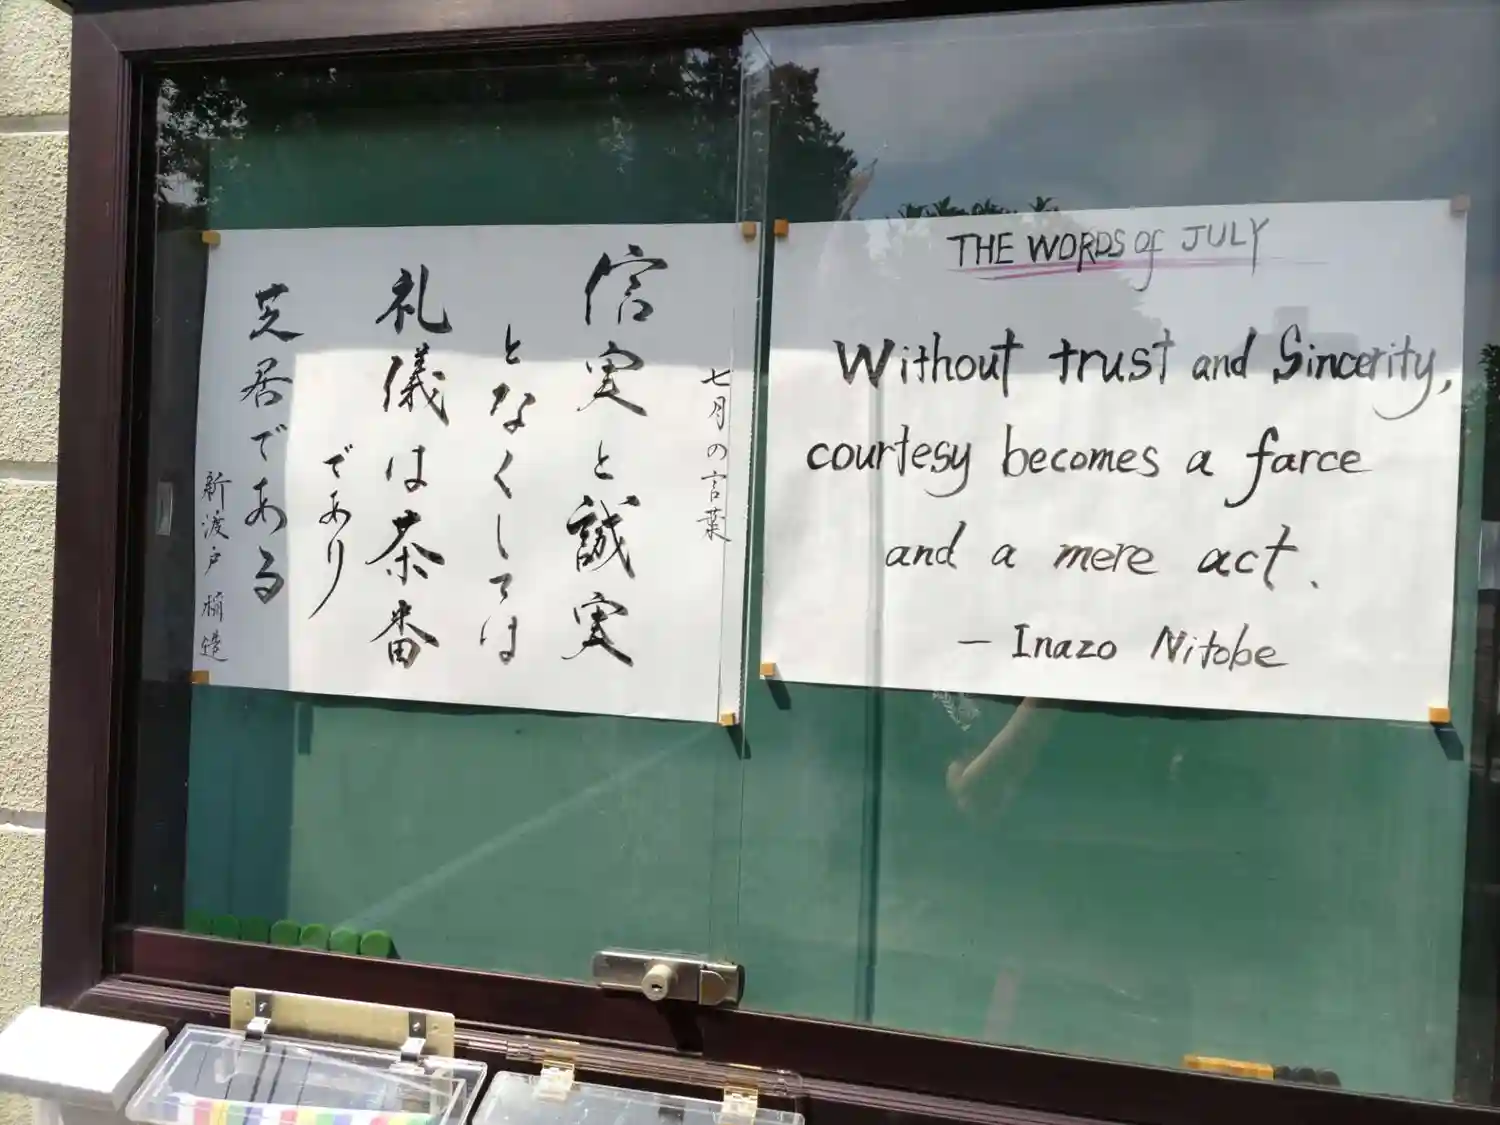 七月の言葉
信実と誠実
となくしては
礼儀は茶番
であり
芝居である
新渡戸稲造
THE WORDS of JULY
Without trust and Sincerity,
courtesy becomes a farce
and a mere act.
— Inazo Nitobe